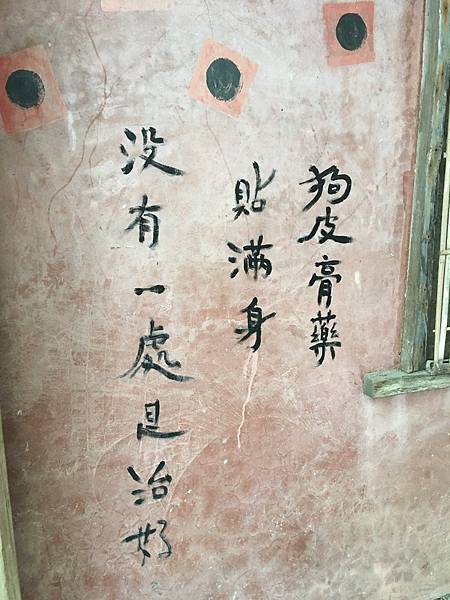 狗皮膏藥
貼滿身
没有一處是治好